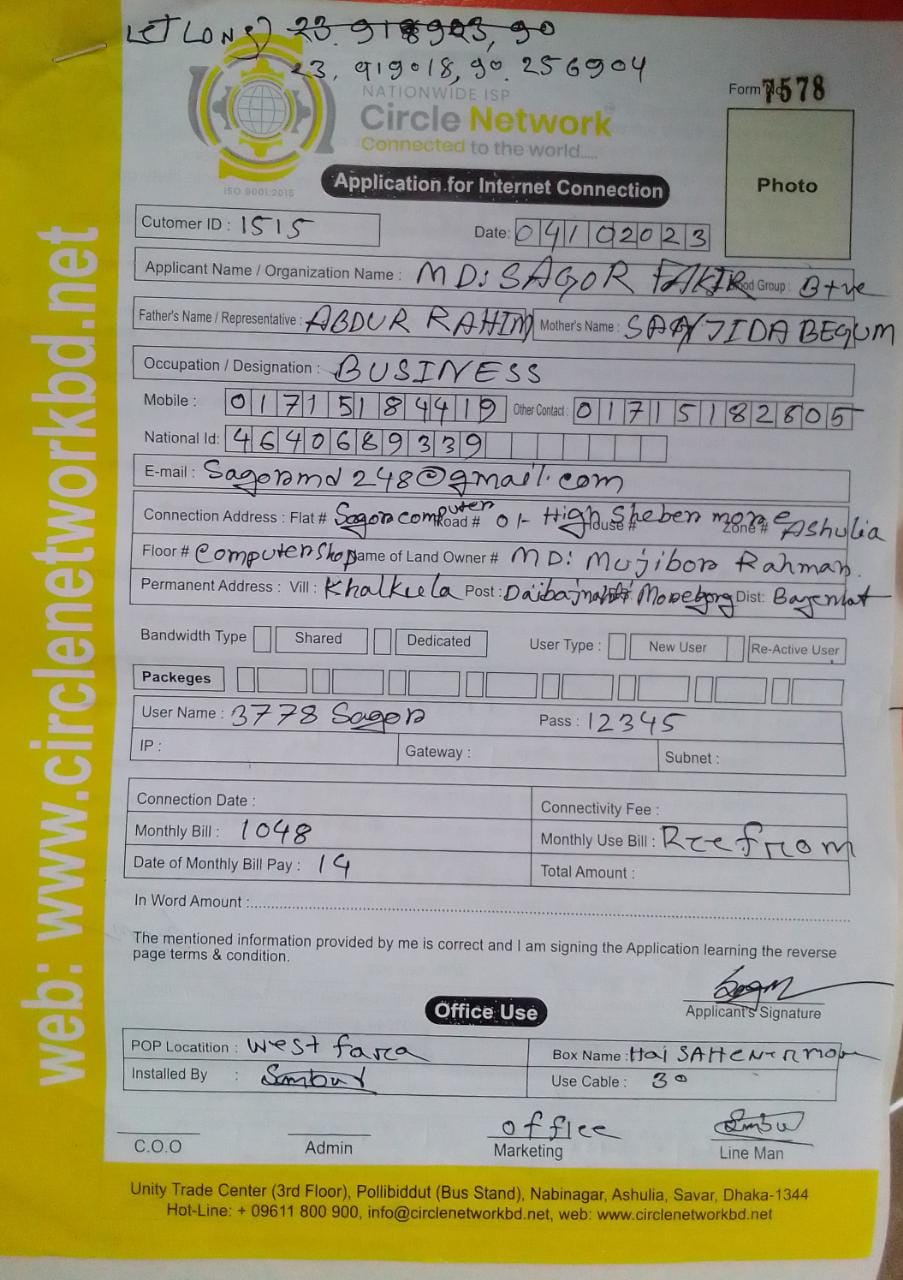 LET LONG) 23.918923, 90
23, 919018, 90. 256904
Form No 7578
NATIONWIDE ISP
Circle Network
Connected to the world.....
ISO 9001:2015
Application for Internet Connection
Photo
Cutomer ID : 1515
Date: 04102023
Applicant Name / Organization Name : MD: SAGOR FAKIR Blood Group : B+ve
Father's Name / Representative : ABDUR RAHIM Mother's Name : JIDA BEGUM
Occupation / Designation : BUSINESS
Mobile : 01715184419 Other Contact : 01715182805
National Id: 4640689339
E-mail : Sagormd248@gmail.com
Connection Address : Flat # Sagor computer Road # 01- High House # Sheben more Zone # Ashulia
Floor # Computer Shop Name of Land Owner # MD: Mujibor Rahman.
Permanent Address : Vill : Khalkula Post : Dist:
Bandwidth Type Shared Dedicated User Type : New User Re-Active User
Packeges
User Name : 3778 Sagor Pass : 12345
IP : Gateway : Subnet :
Connection Date : Connectivity Fee :
Monthly Bill : 1048 Monthly Use Bill :
Date of Monthly Bill Pay : 14 Total Amount :
In Word Amount :
The mentioned information provided by me is correct and I am signing the Application learning the reverse
page terms & condition.
Applicant's Signature
Office Use
POP Locatition : west Box Name :
Installed By : Use Cable : 30
office
C.O.O Admin Marketing Line Man
Unity Trade Center (3rd Floor), Pollibiddut (Bus Stand), Nabinagar, Ashulia, Savar, Dhaka-1344
Hot-Line: + 09611 800 900, info@circlenetworkbd.net, web: www.circlenetworkbd.net
web: www.circlenetworkbd.net